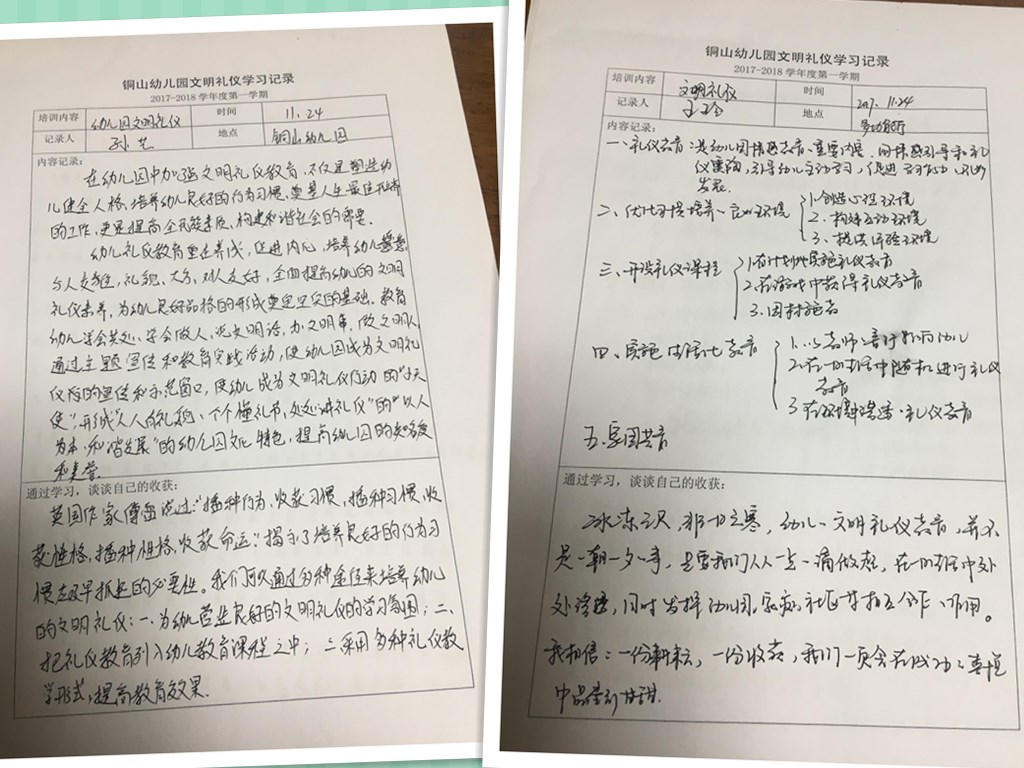 铜山幼儿园文明礼仪学习记录
2017-2018 学年度第一学期
培训内容 幼儿园文明礼仪 时间 11.24
记录人 孙艺 地点 铜山幼儿园
内容记录:
在幼儿园中加强文明礼仪教育,不仅是塑造幼
儿健全人格,培养幼儿良好的行为习惯,
的工作,更是提高全民族素质、构建和谐社会的需要。
幼儿礼仪教育重在养成,促进内化,培养幼儿
与人交往,礼貌、大方,对人友好,全面提高幼儿的文明
礼仪素养,为幼儿良好品格的形成奠定坚实的基础。教育
幼儿学会共处、学会做人,说文明话,办文明事,做文明人,
通过主题宣传和教育实践活动,使幼儿园成为文明礼
仪的宣传和示范窗口,使幼儿成为文明礼仪行动的"小天
使",形成"人人有礼貌、个个懂礼节,处处讲礼仪"的"以人
为本,和谐发展"的幼儿园文化特色,提高幼儿园的知名度
和美誉。
通过学习,谈谈自己的收获:
英国作家 说过:"播种行为,收获习惯,播种习惯,收
获性格,播种性格,收获命运。"揭示了培养良好的行为习
惯应及早抓起的必要性。我们可以通过多种途径来培养幼儿
的文明礼仪:一、为幼儿营造良好的文明礼仪的学习氛围;二、
把礼仪教育列入幼儿教育课程之中;三采用多种礼仪教
学形式,提高教育效果.
铜山幼儿园文明礼仪学习记录
2017-2018 学年度第一学期
培训内容 文明礼仪 时间 2017.11.24
记录人 地点 多功能厅
内容记录:
一、礼仪教育:是幼儿园情感教育、重要内容,用情感引导和礼
仪熏陶,引导幼儿主动学习,促进
发展.
二、优化环境培养 1.创造心理环境
2.构建互动环境
3、提供体验环境
三、开设礼仪课程 1.有计划地实施礼仪教育
2.在游戏中获得礼仪教育
3.因材施教
四、实施 教育 1. 教师言行影响幼儿
2.在一日生活中随机进行礼仪
教育
3. 礼仪教育
五.家园共育
通过学习,谈谈自己的收获:
冰冻三尺,非一日之寒,幼儿、文明礼仪教育,并不
是一朝一夕、事,是要我们从一点一滴做起,在一日生活中处
处渗透,同时发挥幼儿园、家庭、社区 相互合作、作用。
我相信:一份耕耘,一份收获,我们一定会在成功、喜悦
中品尝到甘甜.